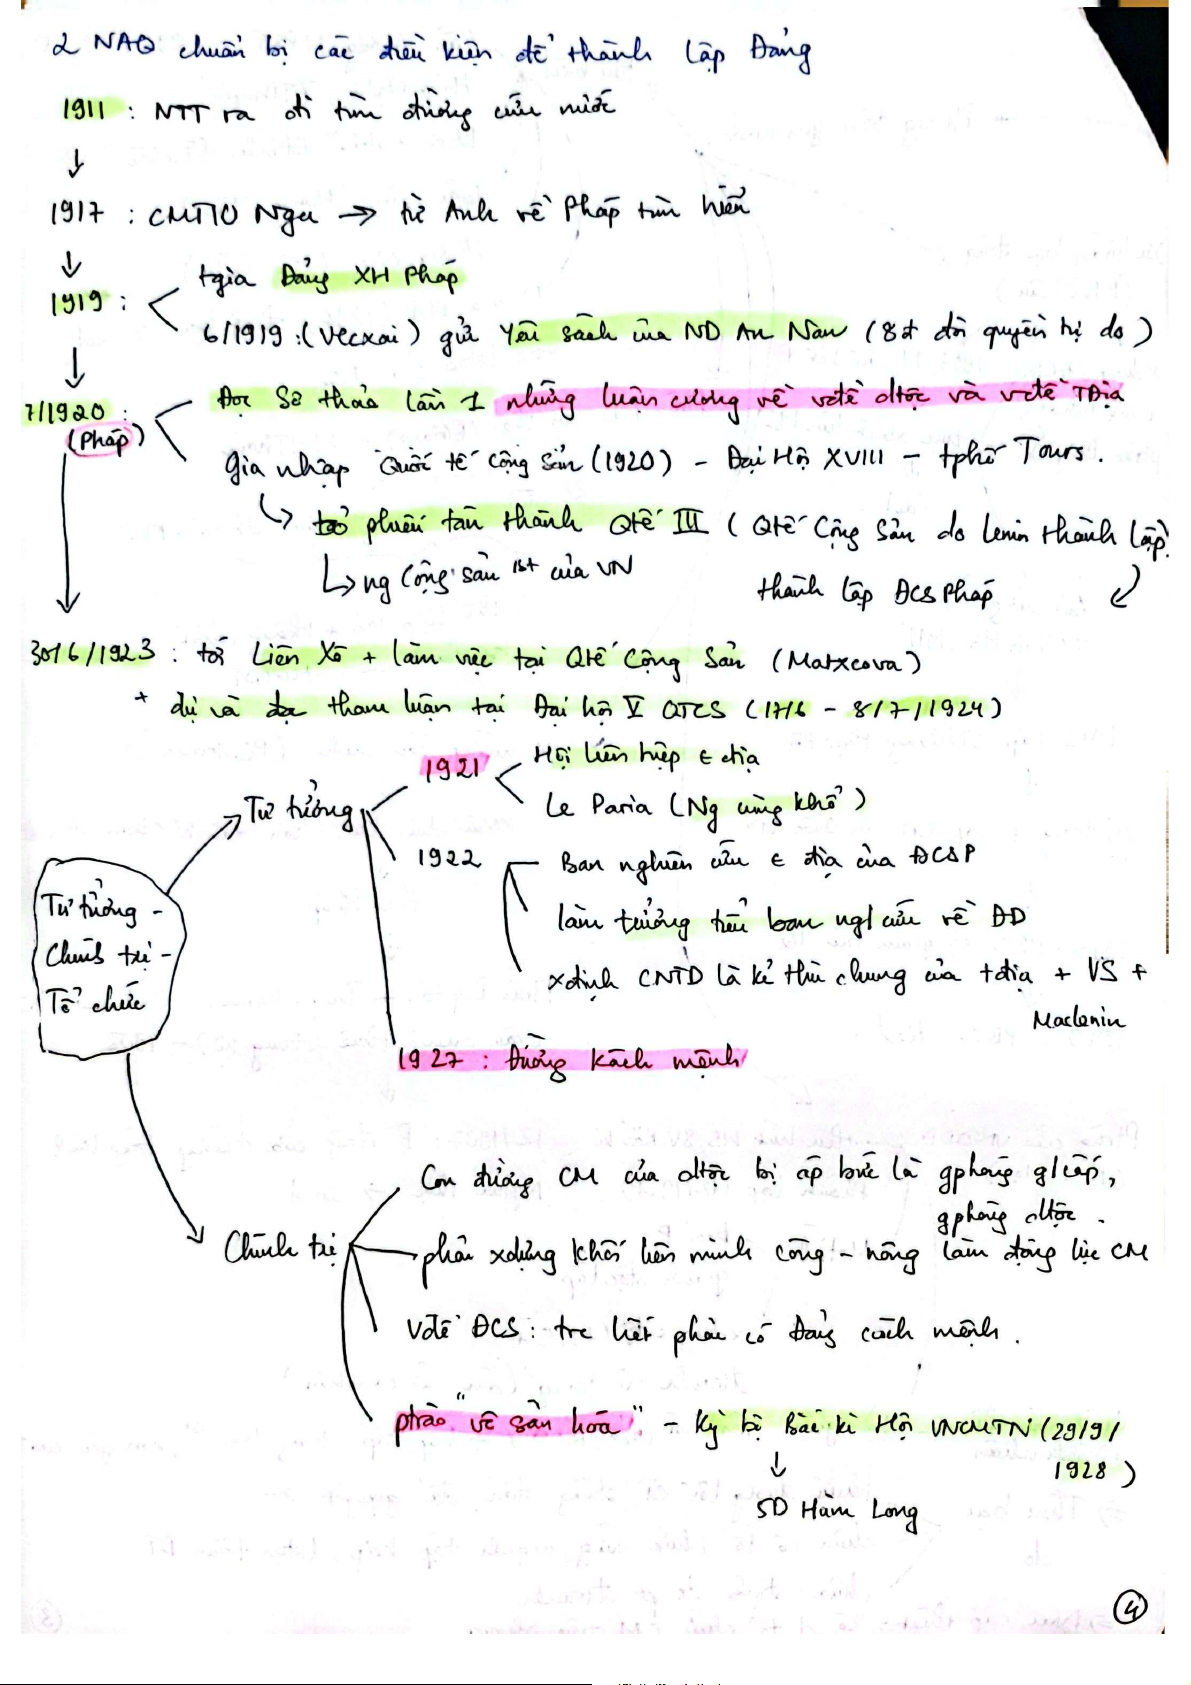 2 NAQ chuẩn bị các điều kiện để thành lập Đảng
1911 : NTT ra đi tìm đường cứu nước
↓
1917 : CMT10 Nga → từ Anh về Pháp tìm hiểu
↓
1919 :
tgia Đảng XH Pháp
6/1919 : (Vecxai) gửi Yêu sách của ND An Nam (8đ đòi quyền tự do)
↓
7/1920 :
(Pháp)
Đọc Sơ thảo lần 1 những luận cương về vđề dtộc và vđề TĐịa
Gia nhập Quốc tế Cộng Sản (1920) – Đại Hộ XVIII – tphố Tours.
↳ bỏ phiếu tán thành Qtế III (Qtế Cộng Sản do Lenin thành lập)
↳ ng Cộng sản 1st của VN
thành lập ĐCS Pháp
30/6/1923 : tới Liên Xô + làm việc tại Qtế Cộng Sản (Matxcova)
+ dự và đọc tham luận tại Đại hội V QTCS (17/6 – 8/7/1924)
Tư tưởng -
Chính trị -
Tổ chức
Tư tưởng
1921
Hội liên hiệp t địa
Le Paria (Ng cùng khổ)
1922
Ban nghiên cứu t địa của ĐCSP
làm trưởng tiểu ban ng/cứu về ĐD
xđịnh CNTD là kẻ thù chung của tđịa + VS +
Maclenin
1927 : Đường Kách mệnh
Chính trị
Con đường CM của dtộc bị áp bức là gphóng g/cấp,
gphóng dtộc.
phải xdựng khối liên minh công – nông làm động lực CM
Vđề ĐCS : trc hết phải có Đảng cách mệnh.
ptrào "vô sản hóa" – Kỳ bộ Bắc kì Hội VNCMTN (29/9/
1928)
↓
5D Hàm Long
4